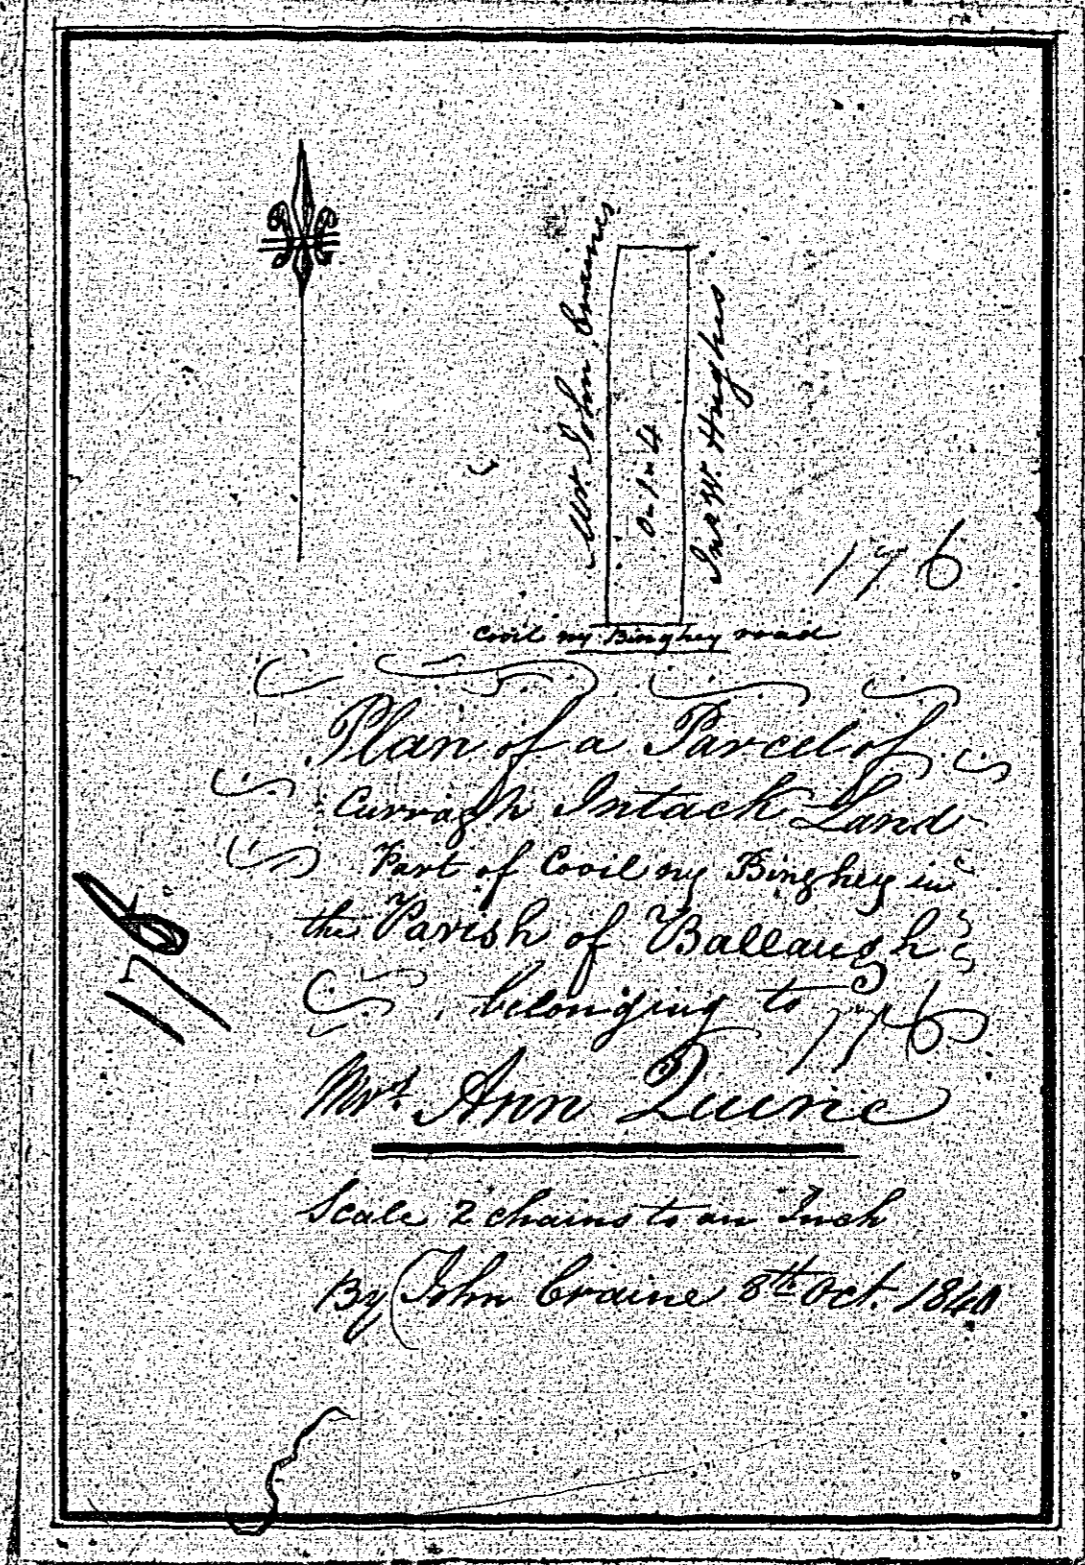 Mr. John Craines
0-1-4
Jno W. Hughes
176
Covil ny Binghey road
Plan of a Parcel of
Curragh Intack Land
Part of Covil ny Binghey in
the Parish of Ballaugh
176
belonging to
176
Mrs. Ann Quine
Scale 2 chains to an Inch
By John Craine 8th Oct. 1840